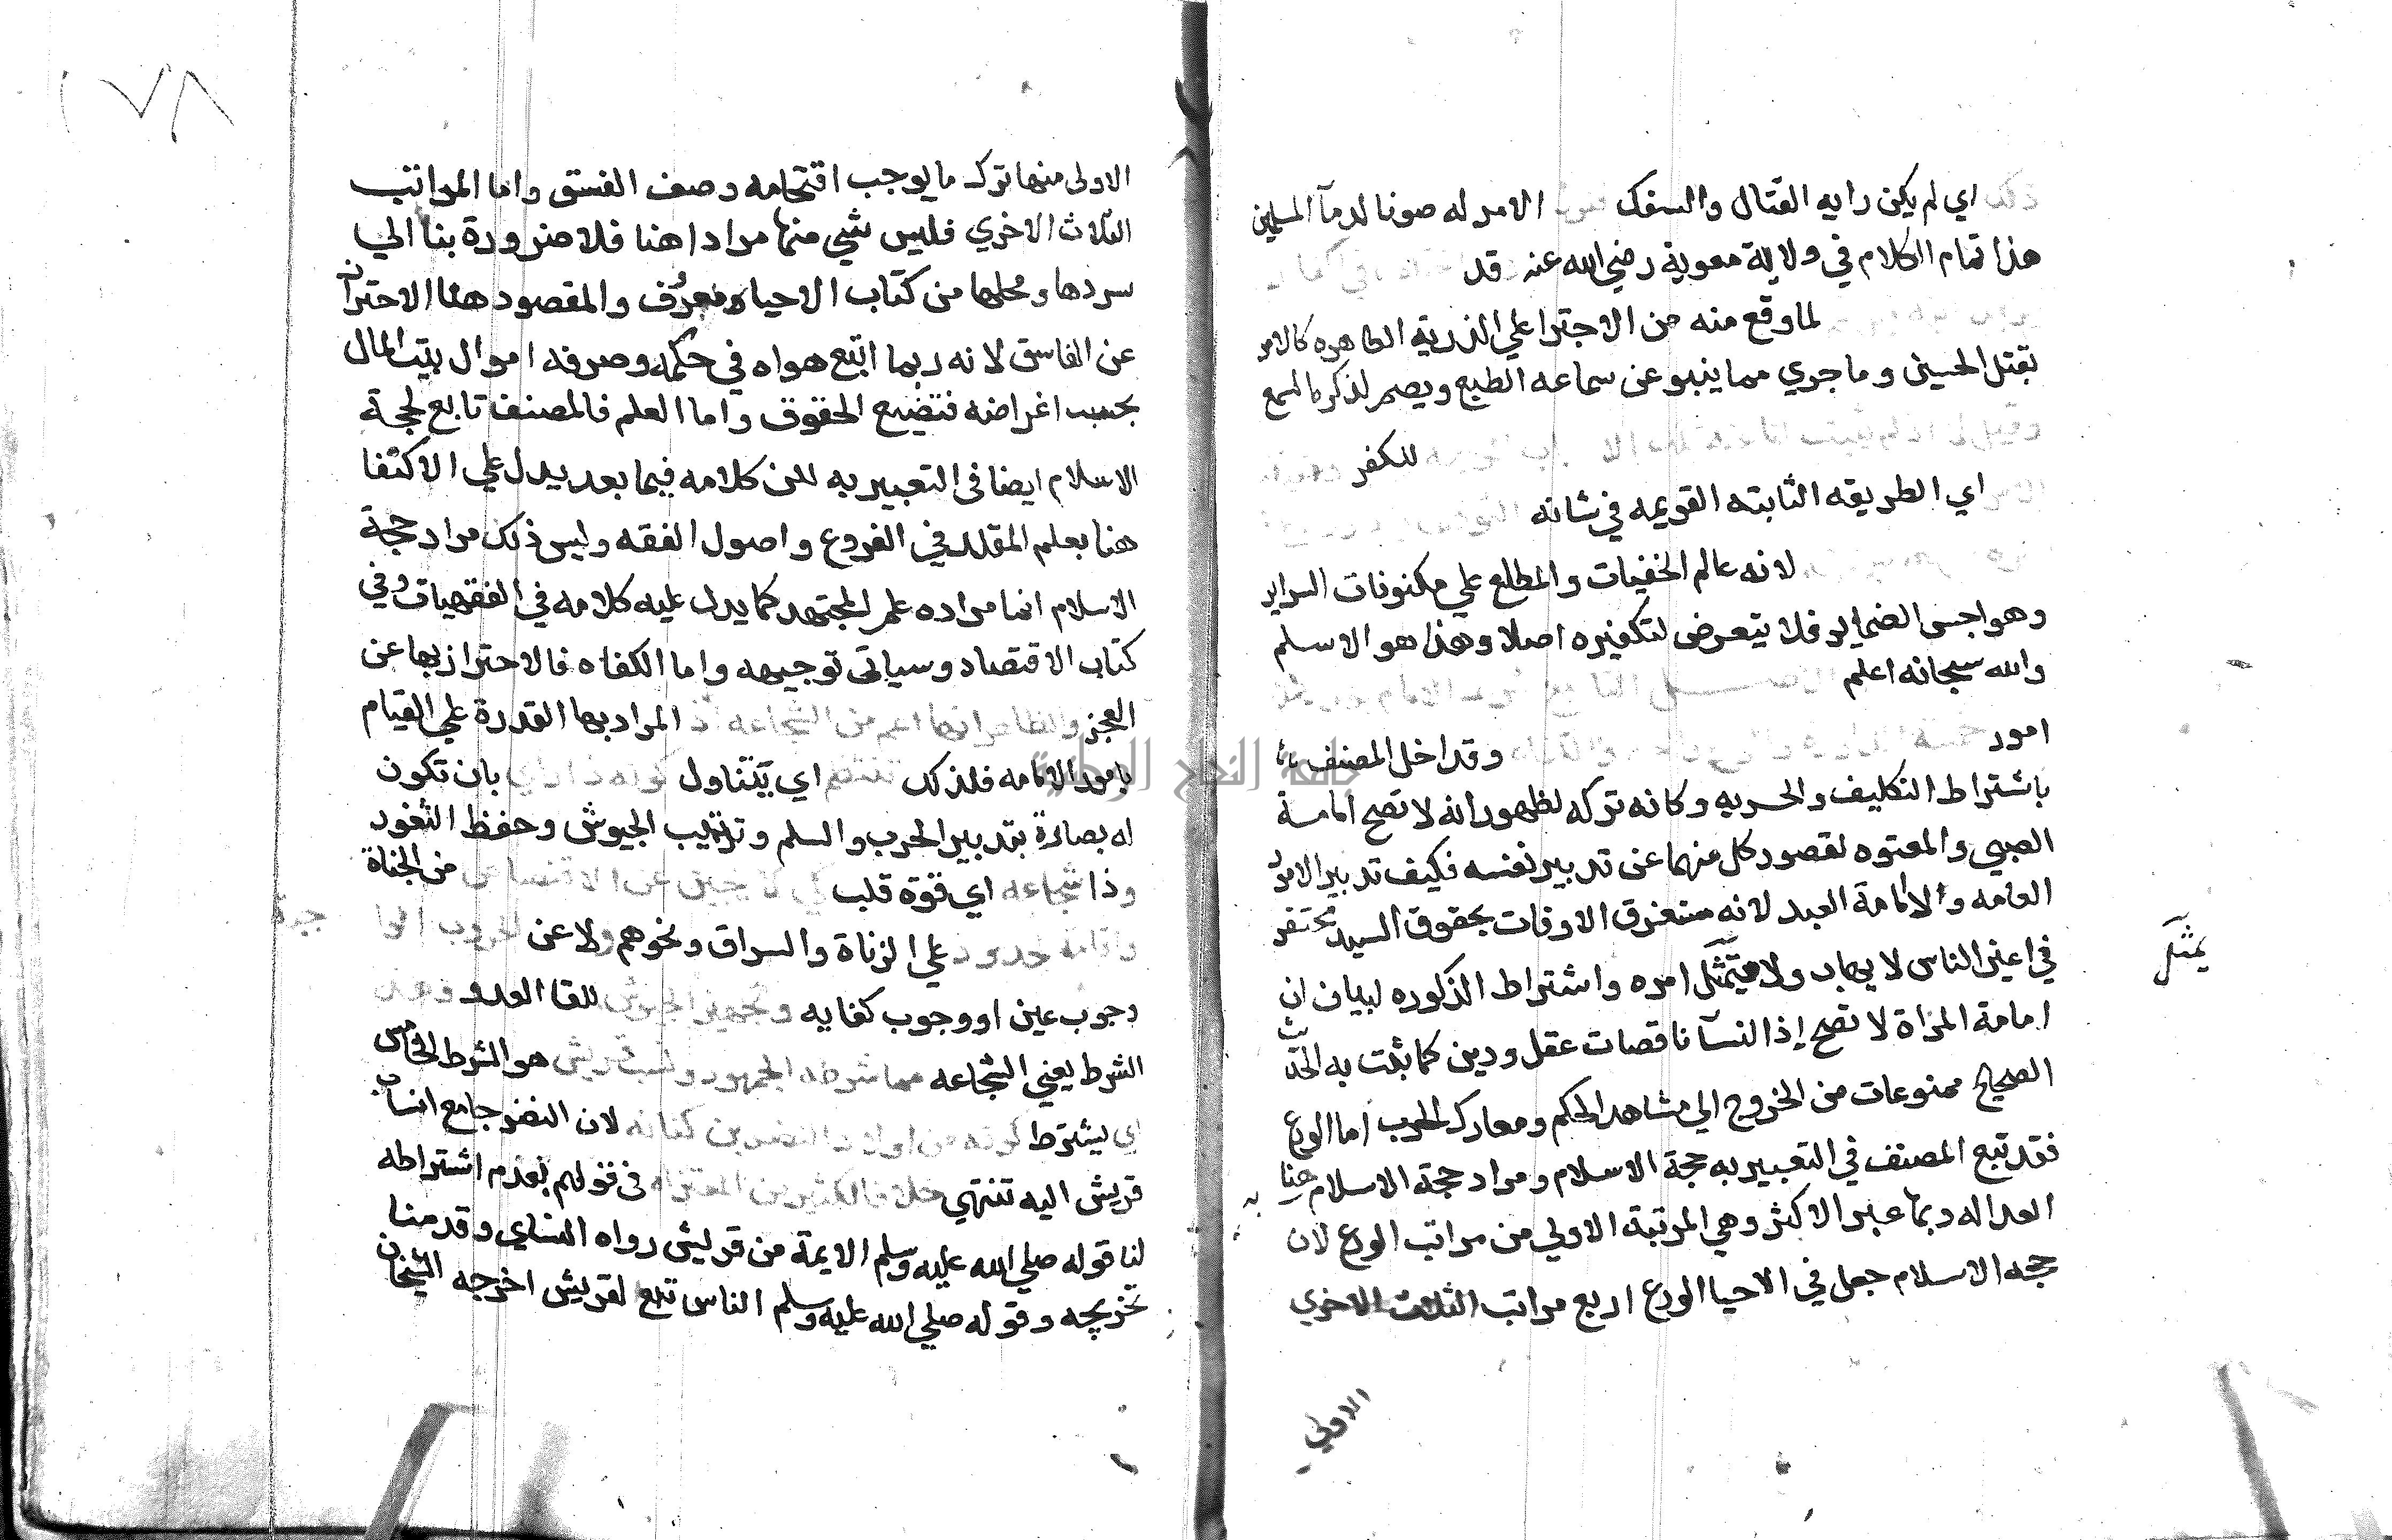 اي لم يكن رايه القتال والسفك الامر له صونا لدمآ المسلمين
هذا تمام الكلام في ولاية معوية رضي الله عنه قد
لما وقع منه من الاجترا علي الذرية الطاهره كالامر
بقتل الحسين وما جري مما ينبو عن سماعه الطبع ويصم لذكره السمع
للكفر
اي الطريقه الثابته القويمه في شانه
لانه عالم الخفيات والمطلع علي مكنونات السراير
وهواجس الضماير فلا يتعرض لتكفيره اصلا وهذا هو الاسلم
والله سبحانه اعلم
امور وقد اخل المصنف
باشتراط التكليف والحريه وكانه تركه لظهور انه لا تصح امامة
الصبي والمعتوه لقصور كل منهما عن تدبير نفسه فكيف تدبير الامور
العامه ولا امامة العبد لانه مستغرق الاوقات بحقوق السيد محتقر
في اعين الناس لا يهاب ولا يتمثل امره واشتراط الذكوره لبيان ان
يمثل
امامة المراة لا تصح إذ النسآ ناقصات عقل ودين كما ثبت به الحديث
الصحيح ممنوعات من الخروج الي مشاهد الحكم ومعارك الحرب اما الورع
فقد تبع المصنف في التعبير به حجة الاسلام ومراد حجة الاسلام هنا به
العداله وبها عبر الاكثر وهي المرتبة الاولي من مراتب الورع لان
حجه الاسلام جعل في الاحيا الورع اربع مراتب الثلاث الاخري
الاولي
جامعة النجاح الوطنية
١٧٨
الاولى منها ترك ما يوجب اقتحامه وصف الفسق واما المراتب
الثلاث الاخري فليس شي منها مرادا هنا فلا ضرورة بنا الي
سردها ومحلها من كتاب الاحياء معرف والمقصود هنا الاحتراز
عن الفاسق لانه ربما اتبع هواه في حكمه وصرفه اموال بيت المال
بحسب اغراضه فتضيع الحقوق واما العلم فالمصنف تابع لحجة
الاسلام ايضا في التعبير به لكن كلامه فيما بعد يدل علي الاكتفا
هنا بعلم المقلد في الفروع واصول الفقه وليس ذلك مراد حجة
الاسلام انما مراده علم المجتهد كما يدل عليه كلامه في الفقهيات وفي
كتاب الاقتصاد وسياتي توجيهه واما الكفاه فالاحتراز بها عن
العجز المراد بها القدرة علي القيام
بامور الامامه فلذلك اي يتناول بان تكون
له بصارة بتدبير الحرب والسلم وترتيب الجيوش وحفظ الثغور
وذا شجاعه اي قوة قلب من الجناة
حدود علي الزناة والسراق ونحوهم ولا عن
وجوب عين او وجوب كفايه وتجهيز الجيوش للقا العدو
الشرط يعني الشجاعه مما شرطه الجمهور ونسب قريش هو الشرط الخامس
اي يشترط لان النضر جامع انساب
قريش اليه تنتهي في قولهم بعدم اشتراطه
لنا قوله صلي الله عليه وسلم الايمة من قريش رواه النساي وقدمنا
تخريجه وقوله صلي الله عليه وسلم الناس تبع لقريش اخرجه الشيخان